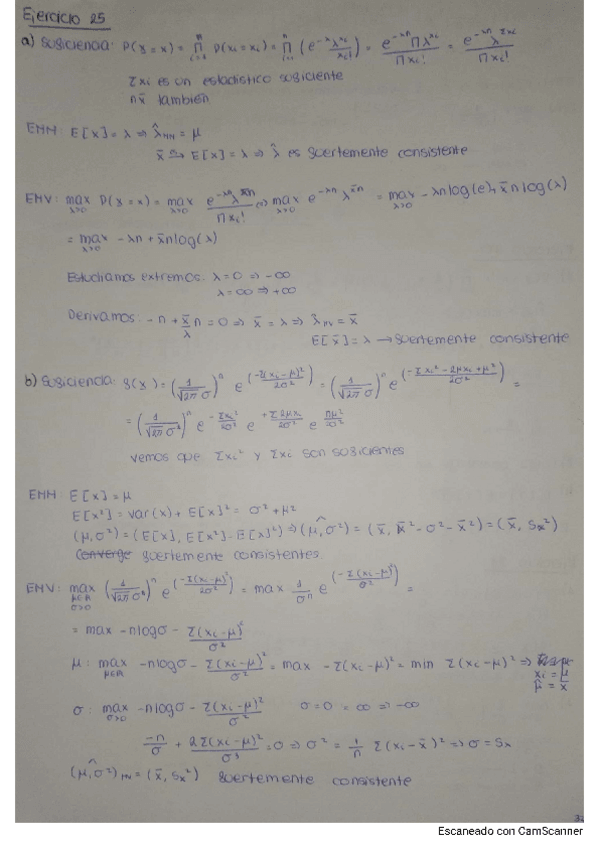 Ejercicio 25
a) Suficiencia: P(X = x) = ∏ⁿᵢ₌₁ P(xᵢ = xᵢ) = ∏ⁿᵢ₌₁ (e^-λ λ^xi / xi!) = e^-λn ∏λ^xi / ∏xi! = e^-λn λ^Σxi / ∏xi!
Σxi es un estadístico suficiente
n x̄ también
EMM: E[x] = λ ⇒ λ̂MM = μ
x̄ → E[x] = λ ⇒ λ̂ es fuertemente consistente
EMV: max λ>0 P(X = x) = max λ>0 e^-λn λ^x̄n / ∏xi! ⇔ max λ>0 e^-λn λ^x̄n = max λ>0 -λn log(e) + x̄ n log(λ)
= max λ>0 -λn + x̄n log(λ)
Estudiamos extremos: λ = 0 ⇒ -∞
λ = ∞ ⇒ +∞
Derivamos: -n + x̄/λ n = 0 ⇒ x̄ = λ ⇒ λ̂MV = x̄
E[x̄] = λ → fuertemente consistente
b) Suficiencia: f(x) = (1/√2π σ)ⁿ e^(-Σ(xi-μ)²/2σ²) = (1/√2π σ)ⁿ e^(-Σxi² - 2μxi + μ²/2σ²) =
= (1/√2π σ²)ⁿ e^-Σxi²/2σ² e^+Σ2μxi/2σ² e^nμ²/2σ²
vemos que Σxi² y Σxi son suficientes
EMM: E[x] = μ
E[x²] = var(x) + E[x]² = σ² + μ²
(μ, σ²) = (E[x], E[x²] - E[x]²) ⇒ (μ, σ²)^ = (x̄, x̄² - σ² - x̄²) = (x̄, Sx²)
Converge fuertemente consistentes
EMV: max μ∈R σ>0 (1/√2π σ²)ⁿ e^(-Σ(xi-μ)²/2σ²) = max 1/σⁿ e^(-Σ(xi-μ)²/σ²) =
= max -n log σ - Σ(xi-μ)²/σ²
μ: max μ∈R -n log σ - Σ(xi-μ)²/σ² = max -Σ(xi-μ)² = min Σ(xi-μ)² ⇒
xi = μ
μ̂ = x̄
σ: max σ>0 -n log σ - Σ(xi-μ)²/σ² σ = 0 = ∞ ⇒ -∞
-n/σ + 2Σ(xi-μ)²/σ³ = 0 ⇒ σ² = 1/n Σ(xi-x̄)² ⇒ σ = Sx
(μ, σ²)^MV = (x̄, Sx²) fuertemente consistente
Escaneado con CamScanner